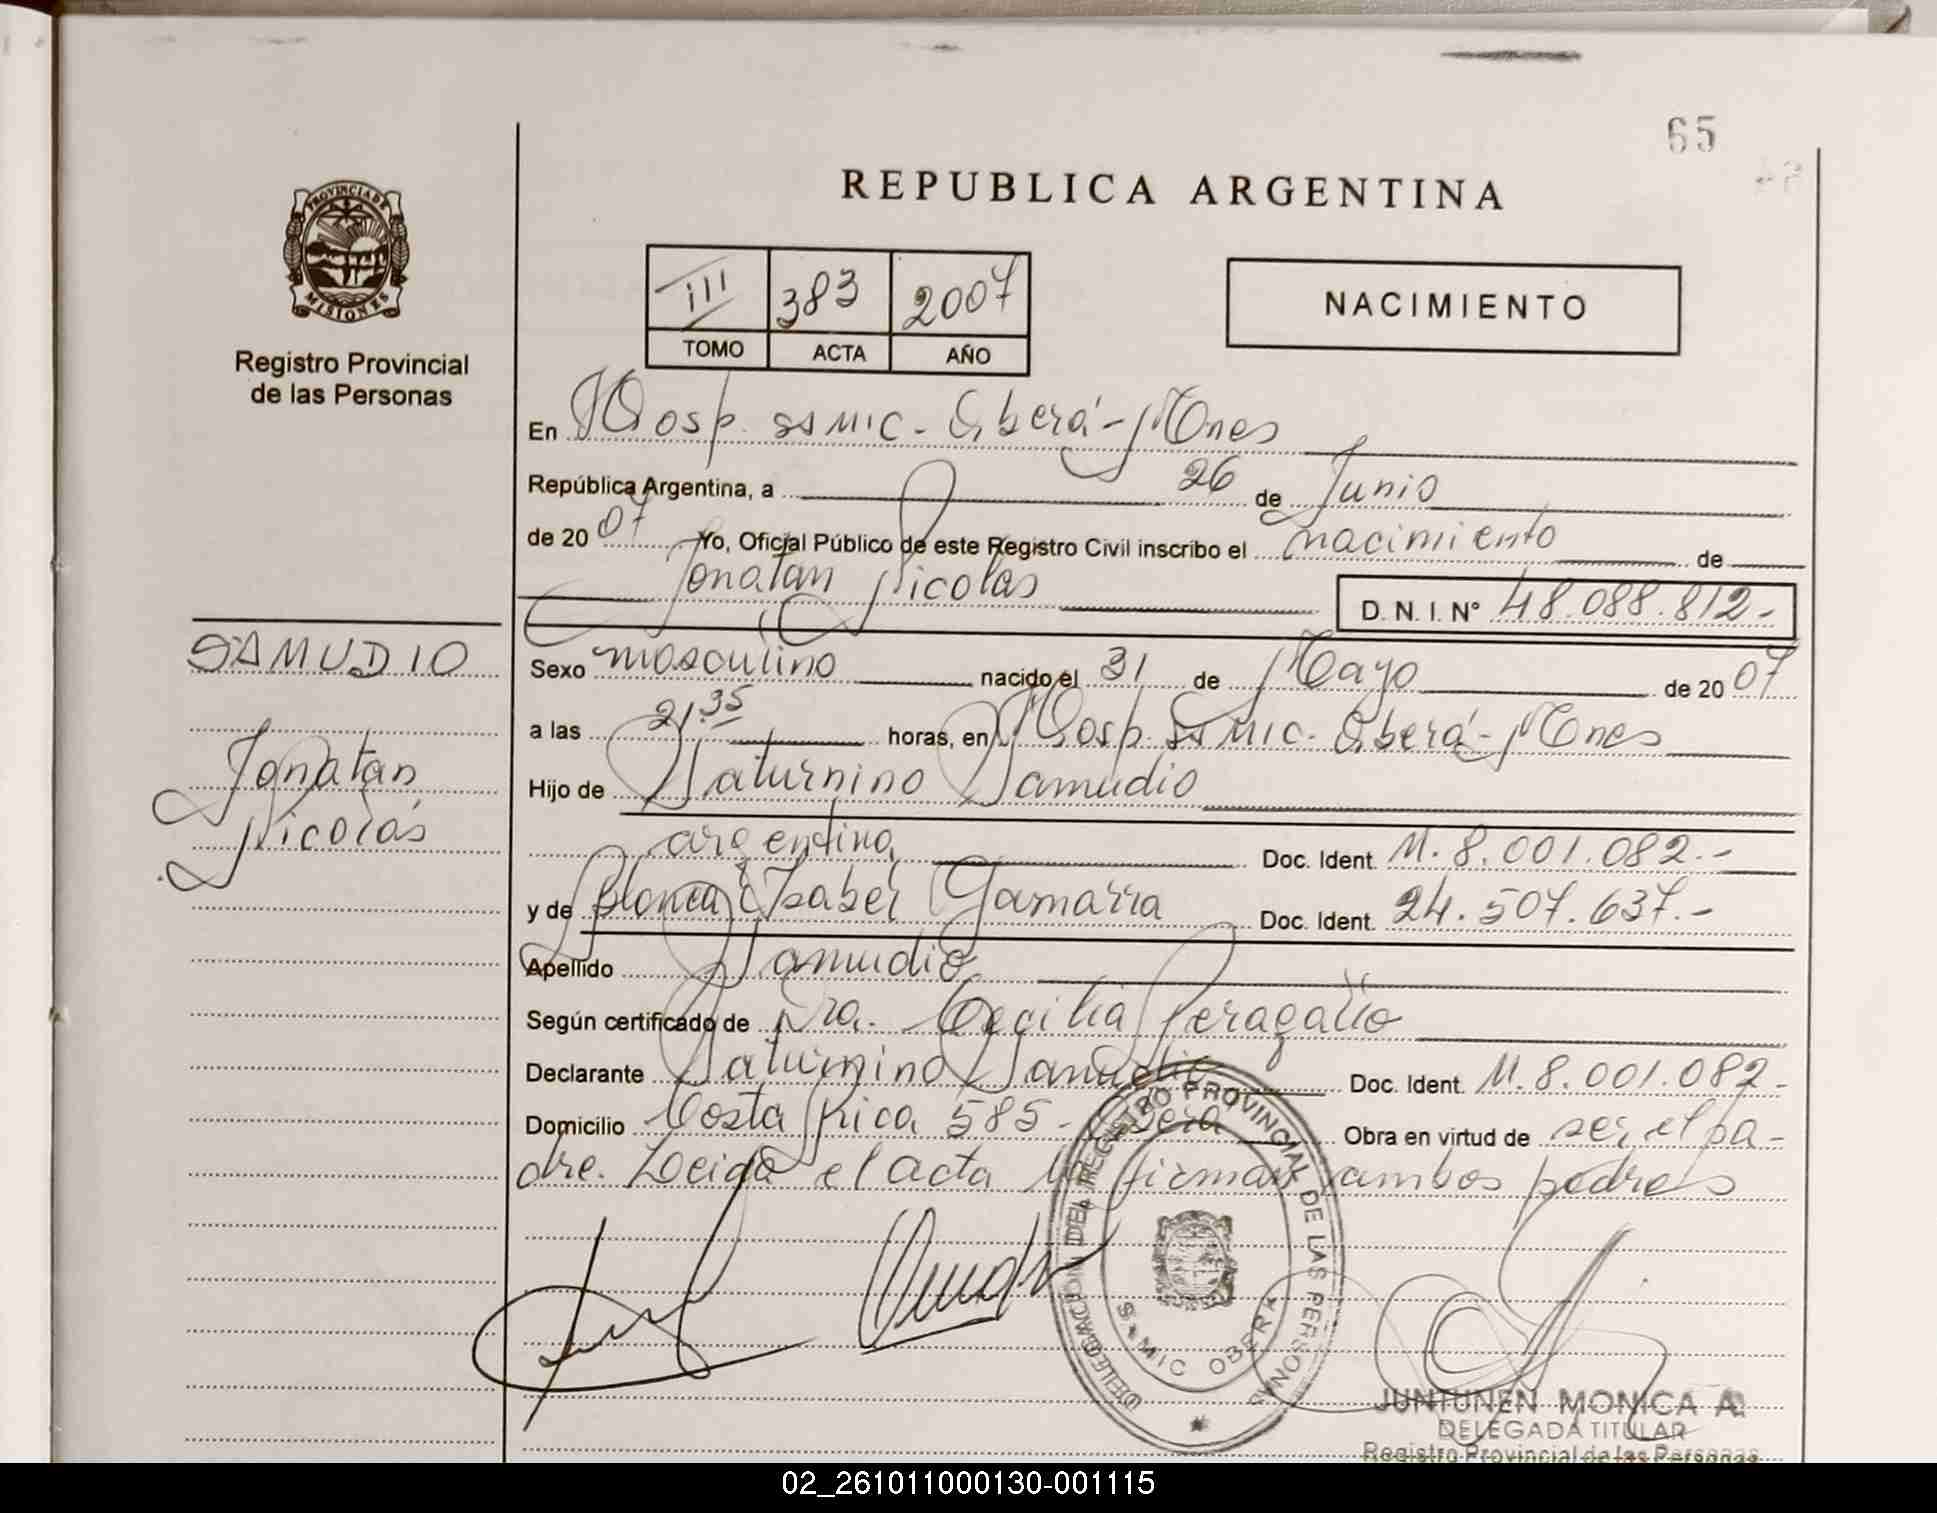 65
PROVINCIA DE
MISIONES
Registro Provincial
de las Personas
REPUBLICA ARGENTINA
III 383 2007
TOMO ACTA AÑO
NACIMIENTO
En Hosp. SSMIC. Oberá - Mnes
República Argentina, a 26 de Junio
de 2007 Yo, Oficial Público de este Registro Civil inscribo el nacimiento de
Jonatan Nicolas D. N. I. Nº 48.088.812.-
SAMUDIO
Jonatan
Nicolás
Sexo masculino nacido el 31 de Mayo de 2007
a las 21.35 horas, en Hosp. SSMIC. Oberá - Mnes
Hijo de Saturnino Samudio
argentino Doc. Ident. M. 8.001.082.-
y de Blanca Isabel Gamarra Doc. Ident. 24.507.637.-
Apellido Samudio
Según certificado de Dra. Cecilia Peragallo
Declarante Saturnino Samudio Doc. Ident. M. 8.001.082-
Domicilio Costa Rica 585 - Oberá Obra en virtud de ser el pa-
dre. Leida el acta la firman ambos padres
DELEGACION DEL REGISTRO PROVINCIAL DE LAS PERSONAS
SAMIC OBERA
JUNTUNEN MONICA A.
DELEGADA TITULAR
Registro Provincial de las Personas
02_261011000130-001115